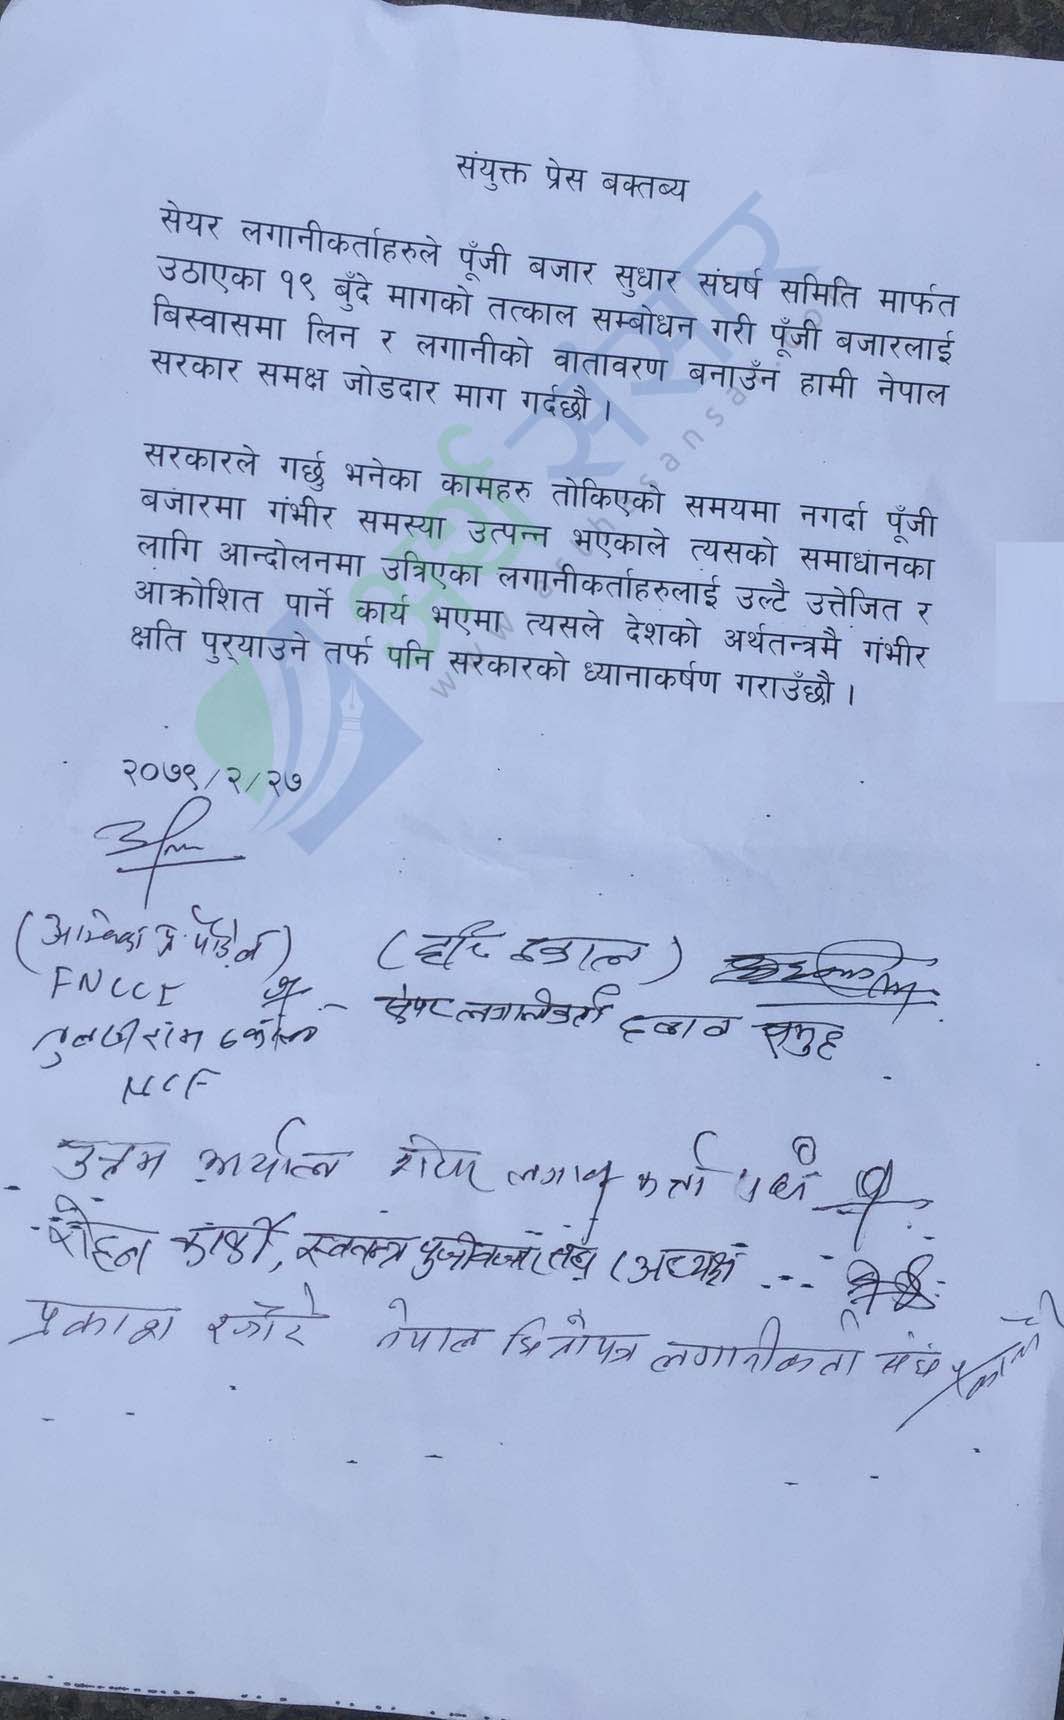 संयुक्त प्रेस बक्तब्य
सेयर लगानीकर्ताहरुले पूँजी बजार सुधार संघर्ष समिति मार्फत
उठाएका १९ बुँदे मागको तत्काल सम्बोधन गरी पूँजी बजारलाई
बिस्वासमा लिन र लगानीको वातावरण बनाउँन हामी नेपाल
सरकार समक्ष जोडदार माग गर्दछौ ।
सरकारले गर्छु भनेका कामहरु तोकिएको समयमा नगर्दा पूँजी
बजारमा गंभीर समस्या उत्पन्न भएकाले त्यसको समाधानका
लागि आन्दोलनमा उत्रिएका लगानीकर्ताहरुलाई उल्टै उत्तेजित र
आक्रोशित पार्ने कार्य भएमा त्यसले देशको अर्थतन्त्रमै गंभीर
क्षति पुर्‍याउने तर्फ पनि सरकारको ध्यानाकर्षण गराउँछौ ।
२०७९/२/२७
(अम्बिका प्र. पौडेल)
FNCCI
तुलसीराम ढकाल
NCF
ढकाल)
सेयर लगानीकर्ता दबाव समुह
उत्तम अर्याल सेयर लगानी कर्ता
रोहन कार्की, स्वतन्त्र पुंजीबजार संघ (अध्यक्ष
प्रकाश नेपाल धितोपत्र लगानीकर्ता संघ
अर्थ संसार